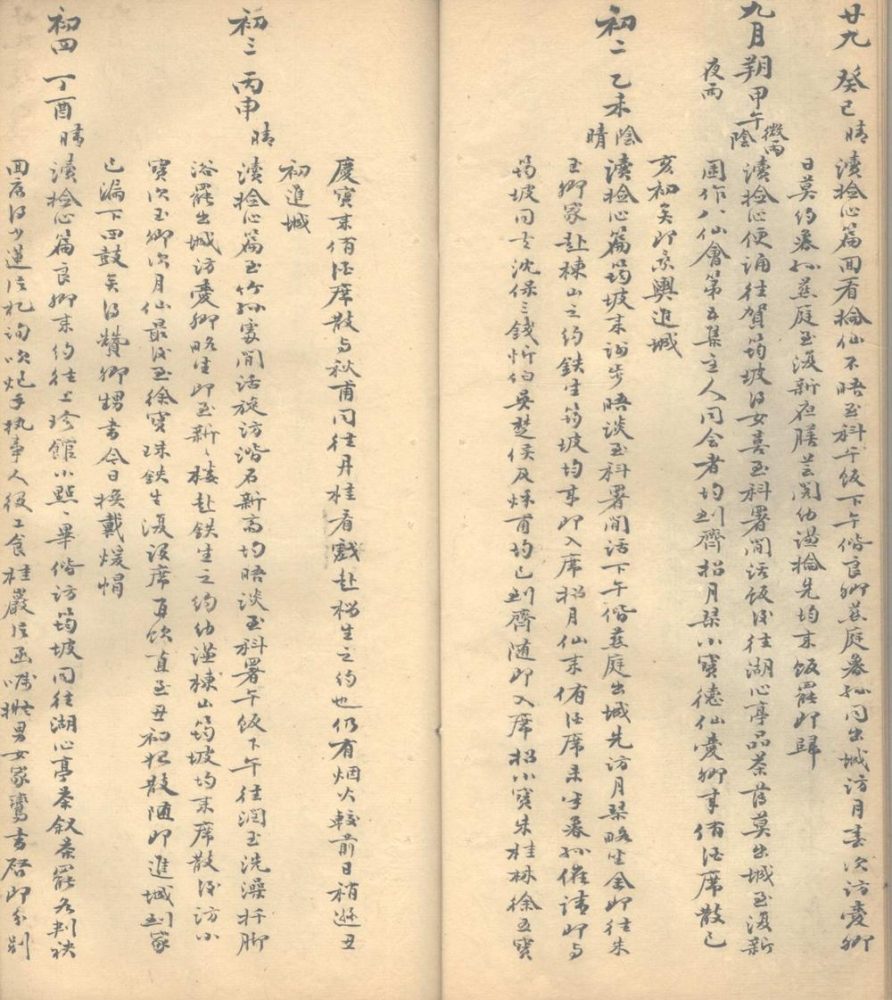 廿九 癸巳 晴 讀捡心篇回看掄仙不晤至科午飯下午偕良卿燕庭叅𭤨同出城訪月春次訪愛卿
日莫約叅𭤨燕庭至復新夜膳芸閣幼滋掄先均來飯罷即歸
九月朔甲午 微雨 陰 夜雨 讀捡心便誦往賀筠坡得女喜至科署閒話飯後往湖心亭品茶薄莫出城至復新
園作八仙會第五集主人同會者均到齊招月琹小寶德仙愛卿來侑酒席散已
亥初矣即乘輿進城
初二 乙未 陰 晴 讀捡心篇筠坡來詶步晤談至科署閒話下午偕燕庭出城先訪月琹略坐仝即往朱
玉卿家赴棟山之約鉄生筠坡均來即入席招月仙來侑酒席未半叅𭤨催請即与
筠坡同去沈保三錢忻伯吳楚侯及秋甫均已到齊隨即入席招小寶朱桂林徐五寶
慶寶來侑酒席散与秋甫同往丹桂看戲赴桜生之約也仍有烟火較前日稍遜丑
初進城
初三 丙申 晴 讀捡心篇至竹𭤨處閒話旋訪渻石新高均晤談至科署午飯下午往潤玉洗澡扦脚
浴罷出城訪愛卿略坐即至新新樓赴鉄生之約幼滋棟山筠坡均來席散後訪小
寶次玉卿次月仙最後至徐寶珠鉄生復設席再飲直至丑初始散隨即進城到家
已漏下四鼓矣得贊卿甥書今日換戴煖帽
初四 丁酉 晴 讀捡心篇良卿來約往上珍館小點點畢偕訪筠坡同往湖心亭茶叙茶罷各判袂
回店得少蓮信札詢吹炮手執事人役工食桂嚴信函囑批男女家鸞書啓即分別